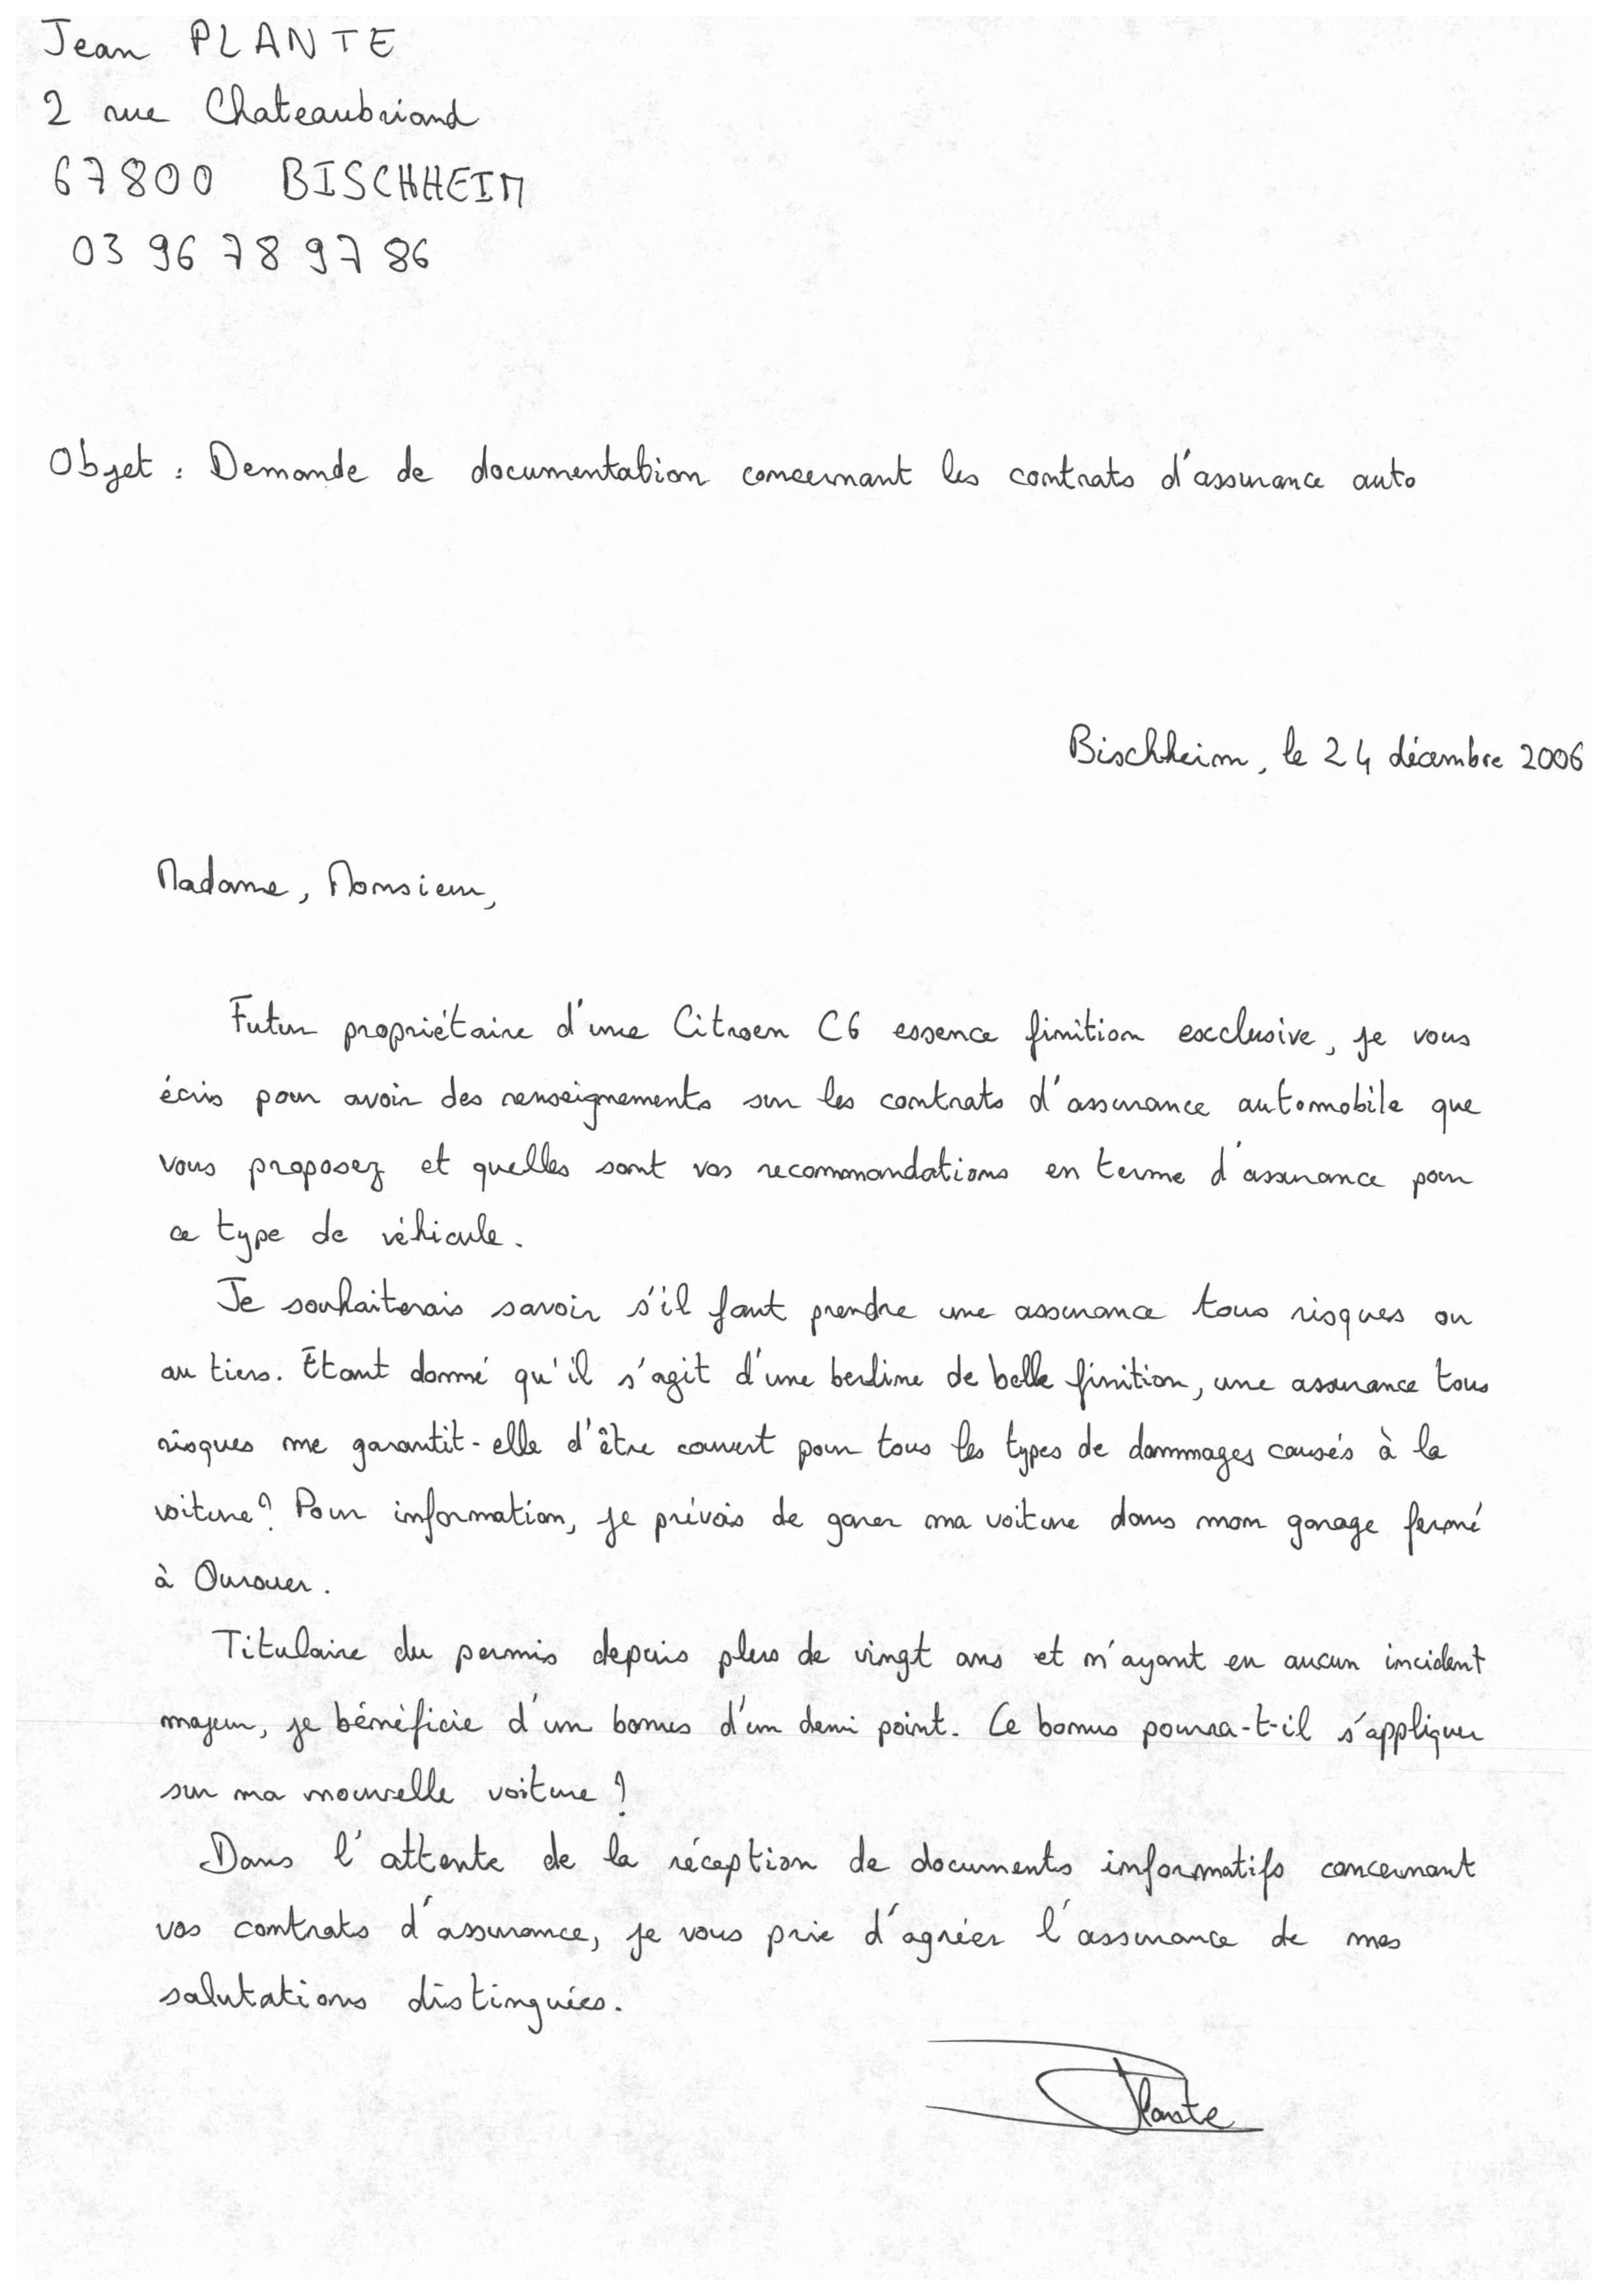 Jean PLANTE
2 rue Chateaubriand
67800 BISCHHEIM
03 96 78 97 86
Objet : Demande de documentation concernant les contrats d'assurance auto
Bischheim, le 24 décembre 2006
Madame, Monsieur,
Futur propriétaire d'une Citroen C6 essence finition exclusive, je vous
écris pour avoir des renseignements sur les contrats d'assurance automobile que
vous proposez et quelles sont vos recommandations en terme d'assurance pour
ce type de véhicule.
Je souhaiterais savoir s'il faut prendre une assurance tous risques ou
au tiers. Etant donné qu'il s'agit d'une berline de belle finition, une assurance tous
risques me garantit-elle d'être couvert pour tous les types de dommages causés à la
voiture? Pour information, je prévois de garer ma voiture dans mon garage fermé
à Ourouer.
Titulaire du permis depuis plus de vingt ans et n'ayant eu aucun incident
majeur, je bénéficie d'un bonus d'un demi point. Ce bonus pourra-t-il s'appliquer
sur ma nouvelle voiture ?
Dans l'attente de la réception de documents informatifs concernant
vos contrats d'assurance, je vous prie d'agréer l'assurance de mes
salutations distinguées.
Plante